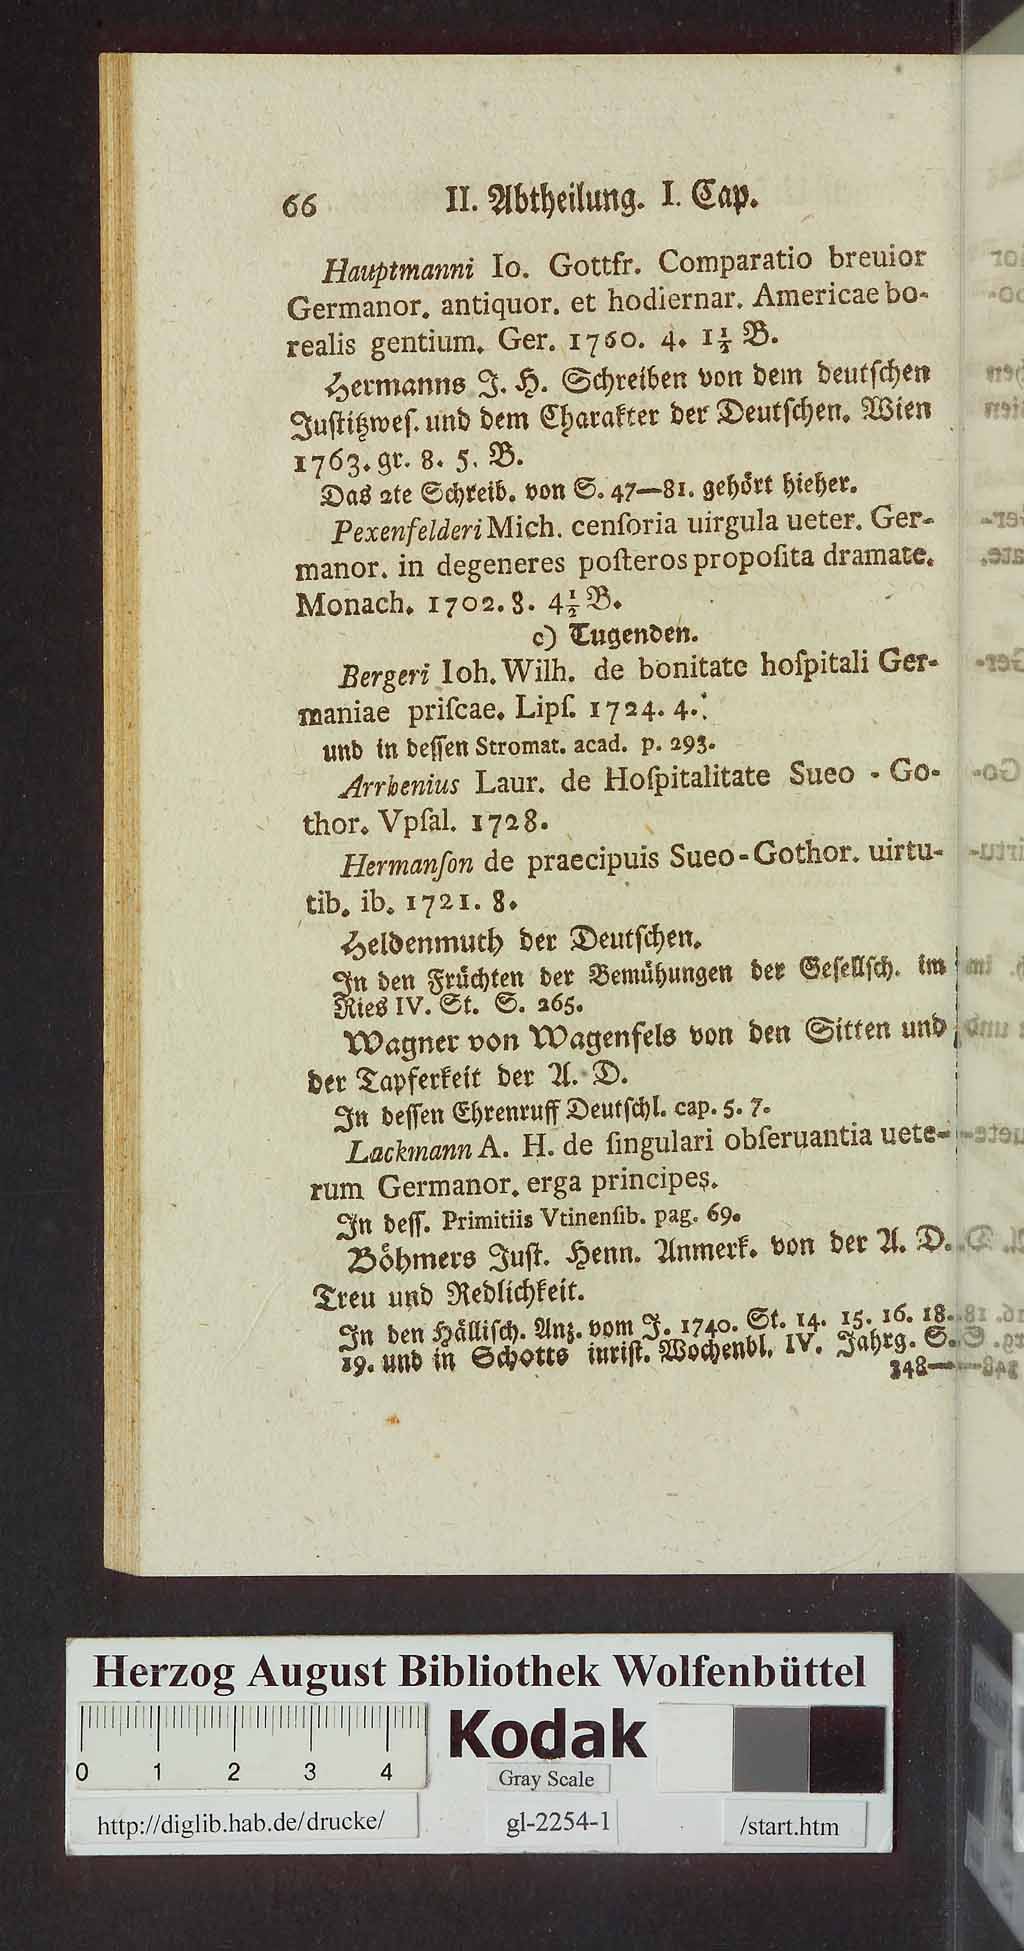 66 II. Abtheilung. I. Cap.
Hauptmanni Io. Gottfr. Comparatio breuior
Germanor. antiquor. et hodiernar. Americae bo-
realis gentium. Ger. 1760. 4. 1½ B.
Hermanns J. H. Schreiben von dem deutschen
Justitzwes. und dem Charakter der Deutschen. Wien
1763. gr. 8. 5. B.
Das 2te Schreib. von S. 47—81. gehört hieher.
Pexenfelderi Mich. cenſoria uirgula ueter. Ger-
manor. in degeneres poſteros propoſita dramate.
Monach. 1702. 8. 4½ B.
c) Tugenden.
Bergeri Ioh. Wilh. de bonitate hoſpitali Ger-
maniae priſcae. Lipſ. 1724. 4.
und in dessen Stromat. acad. p. 293.
Arrhenius Laur. de Hoſpitalitate Sueo - Go-
thor. Vpſal. 1728.
Hermanſon de praecipuis Sueo-Gothor. uirtu-
tib. ib. 1721. 8.
Heldenmuth der Deutschen.
In den Früchten der Bemühungen der Gesellsch. im
Ries IV. St. S. 265.
Wagner von Wagenfels von den Sitten und
der Tapferkeit der A. D.
In dessen Ehrenruff Deutschl. cap. 5. 7.
Lackmann A. H. de ſingulari obſeruantia uete-
rum Germanor. erga principes.
In dess. Primitiis Vtinenſib. pag. 69.
Böhmers Just. Henn. Anmerk. von der A. D.
Treu und Redlichkeit.
In den Hällisch. Anz. vom J. 1740. St. 14. 15. 16. 18.
19. und in Schotts iurist. Wochenbl. IV. Jahrg. S.
348—
Herzog August Bibliothek Wolfenbüttel
0 1 2 3 4
Kodak
Gray Scale
http://diglib.hab.de/drucke/ gl-2254-1 /start.htm